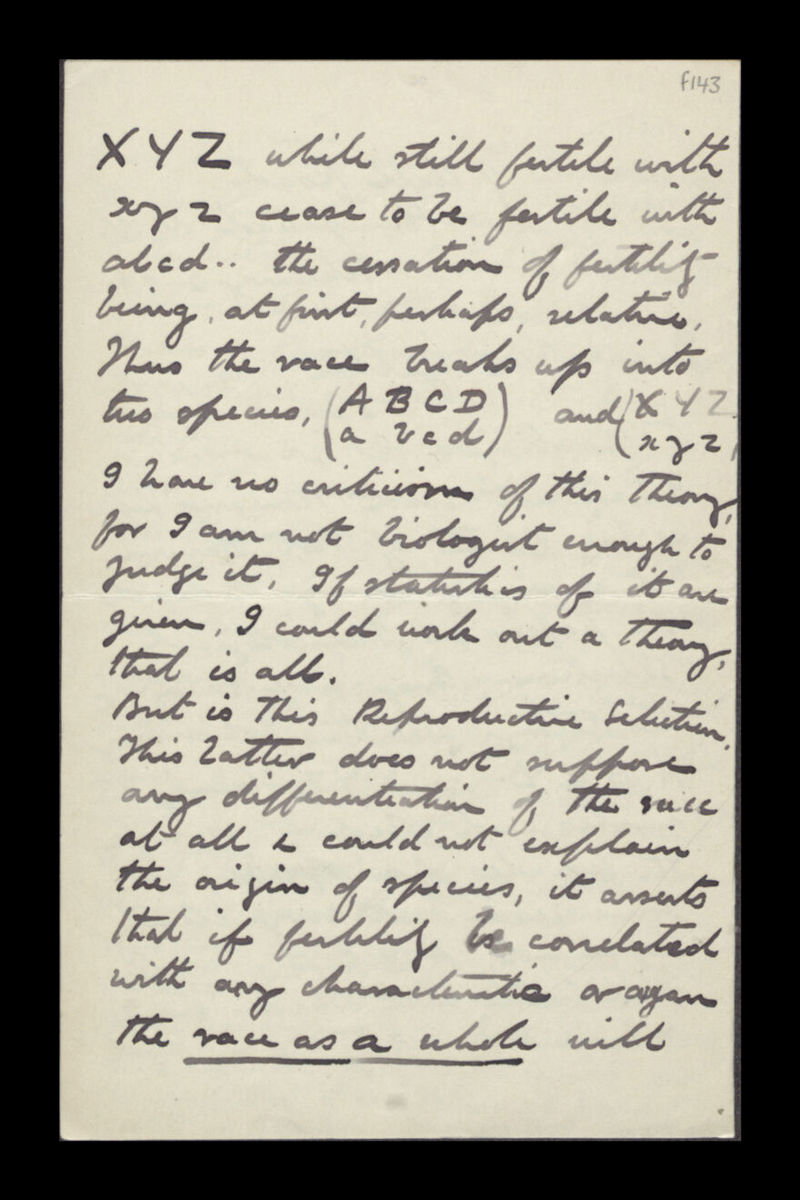 f143
XYZ while still fertile with
xyz cease to be fertile with
abcd.. the cessation of fertility
being, at first, perhaps, relative.
Thus the race breaks up into
two species, (A B C D and (X Y Z
a b c d) x y z)
I have no criticism of this theory,
for I am not biologist enough to
judge it. If statistics of it are
given, I could work out a theory,
that is all.
But is this Reproductive Selection.
This latter does not suppose
any differentiation of the race
at all & could not explain
the origin of species, it asserts
that if fertility be correlated
with any characteristic or organ
the race as a whole will